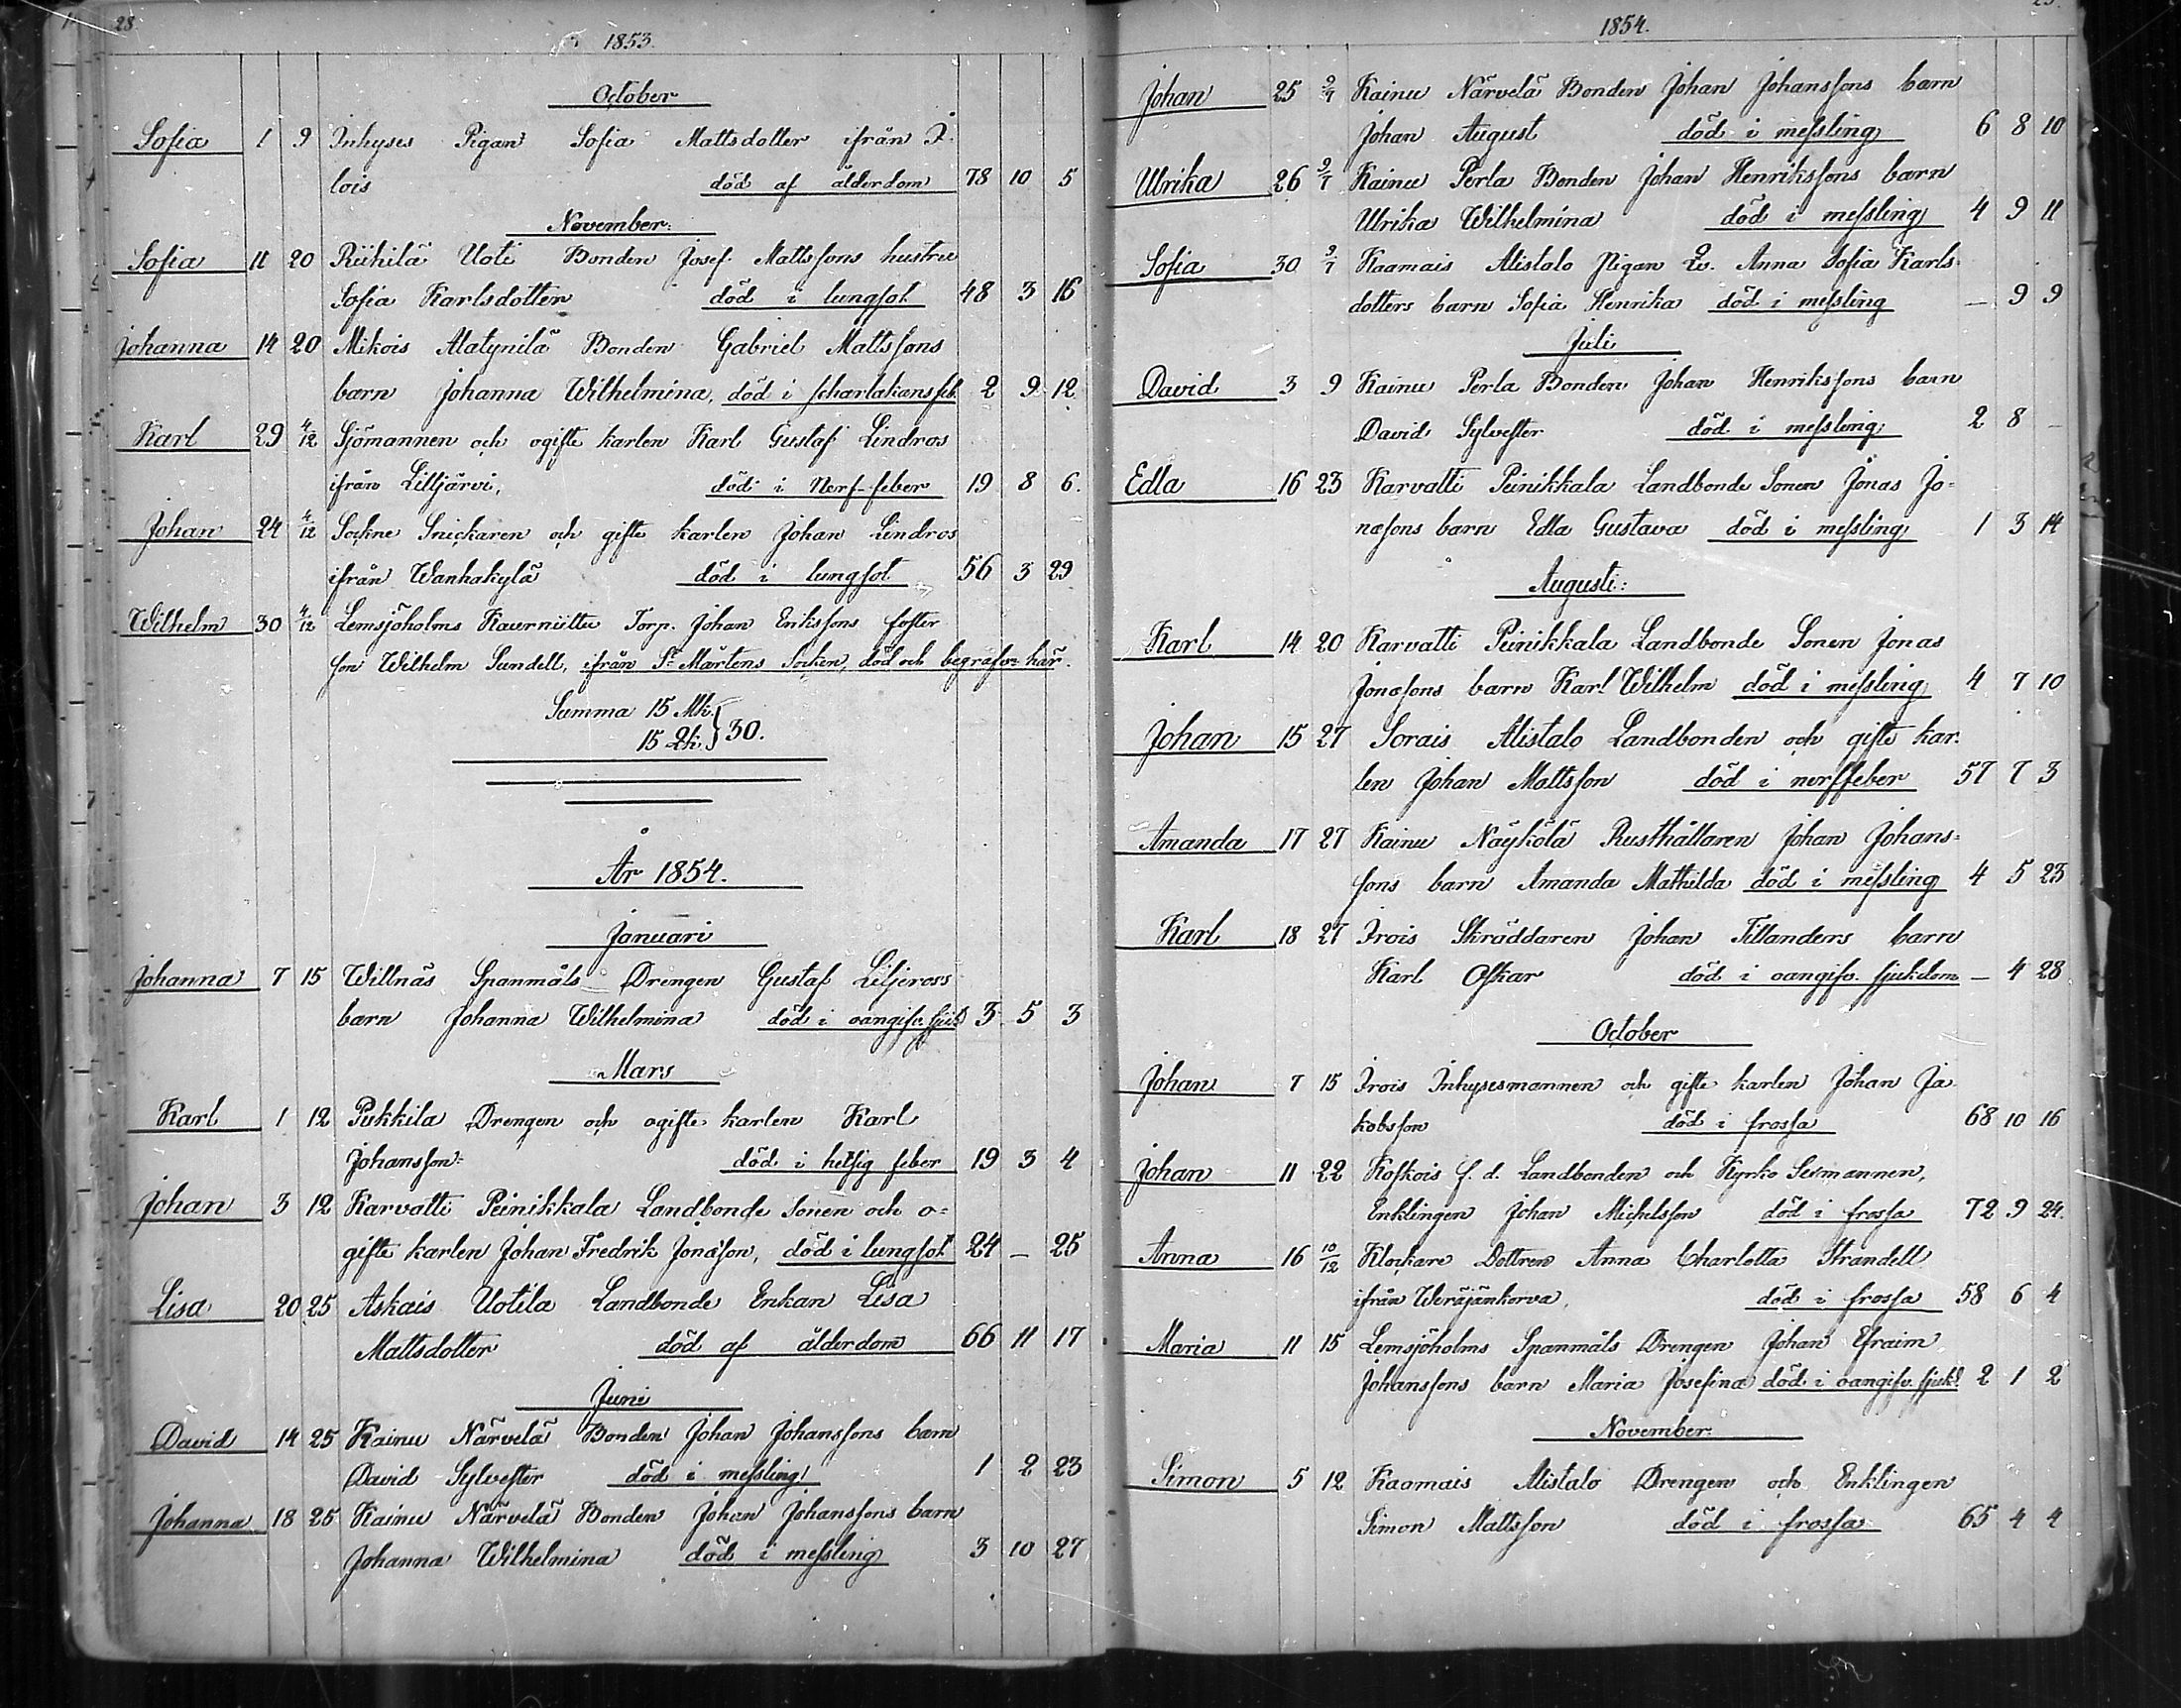 28.
1853.
October
Sofia 1 9 Inhyses Pigan Sofia Mattsdotter ifrån I-
lois död af ålderdom 78 10 5
November:
Sofia 11 20 Riihilä Uoti Bonden Josef Mattssons hustru
Sofia Karlsdotter död i lungsot 48 3 16
Johanna 14 20 Mikois Alatynilä Bonden Gabriel Mattssons
barn Johanna Wilhelmina, död i scharlakansfeb. 2 9 12
Karl 29 4/12 Sjömannen och ogifte karlen Karl Gustaf Lindros
ifrån Lilljärvi, död i Nerf-feber 19 8 6.
Johan 24 4/12 Sockne Snickaren och gifte karlen Johan Lindros
ifrån Wanhakylä död i lungsot 56 3 29
Wilhelm 30 4/12 Lemsjöholms Kaurniittu Torp. Johan Erikssons foster
son Wilhelm Sundell, ifrån St Mårtens Socken, död och begrafv: här.
Summa 15 Mk.
15 Qk. } 30.
År 1854.
Januari
Johanna 7 15 Willnäs Spanmåls-Drengen Gustaf Liljeross
barn Johanna Wilhelmina död i oangifv. sjuk. 3 5 3
Mars
Karl 1 12 Pukkila Drengen och ogifte karlen Karl
Johansson: död i hetsig feber 19 3 4
Johan 3 12 Karvatti Peinikkala Landbonde Sonen och o=
gifte karlen Johan Fredrik Jonasson, död i lungsot 24 — 25
Lisa 20 25 Askais Uotila Landbonde Enkan Lisa
Mattsdotter död af ålderdom 66 11 17
Juni
David 14 25 Kainu Närvelä Bonden Johan Johanssons barn
David Sylvester död i messling 1 2 23
Johanna 18 25 Kainu Närvelä Bonden Johan Johanssons barn
Johanna Wilhelmina död i messling 3 10 27
1854.
Johan 25 9/7 Kainu Närvelä Bonden Johan Johanssons barn
Johan August död i messling 6 8 10
Ulrika 26 9/7 Kainu Perla Bonden Johan Henrikssons barn
Ulrika Wilhelmina död i messling 4 9 11
Sofia 30 9/7 Kaamais Alistalo Pigan Anna Sofia Karls
dotters barn Sofia Henrika död i messling — 9 9
Juli
David 3 9 Kainu Perla Bonden Johan Henrikssons barn
David Sylvester död i messling 2 8 —
Edla 16 23 Karvatti Peinikkala Landbonde Sonen Jonas Jo=
nasons barn Edla Gustava död i messling 1 3 14
Augusti:
Karl 14 20 Karvatti Peinikkala Landbonde Sonen Jonas
Jonasons barn Karl Wilhelm död i messling 4 7 10
Johan 15 27 Sorais Alistalo Landbonden och gifte kar-
len Johan Mattsson död i nerffeber 57 7 3
Amanda 17 27 Kainu Näykölä Rusthållaren Johan Johans=
sons barn Amanda Mathilda död i messling 4 5 23
Karl 18 27 Irois Skräddaren Johan Tillanders barn
Karl Oskar död i oangifv. sjukdom — 4 28
October
Johan 7 15 Irois Inhysesmannen och gifte karlen Johan Ja-
kobsson död i frossa 68 10 16
Johan 11 22 Koskois f. d. Landbonden och Kyrko Sexmannen,
Enklingen Johan Michelsson död i frossa 72 9 24.
Anna 16 10/12 Klockare Dottren Anna Charlotta Strandell
ifrån Weräjänkorva, död i frossa 58 6 4
Maria 11 15 Lemsjöholms Spanmåls Drengen Johan Efraim
Johanssons barn Maria Josefina död i oangifv. sjukd. 2 1 2
November:
Simon 5 12 Kaamais Alistalo Drengen och Enklingen
Simon Mattsson död i frossa 65 4 4